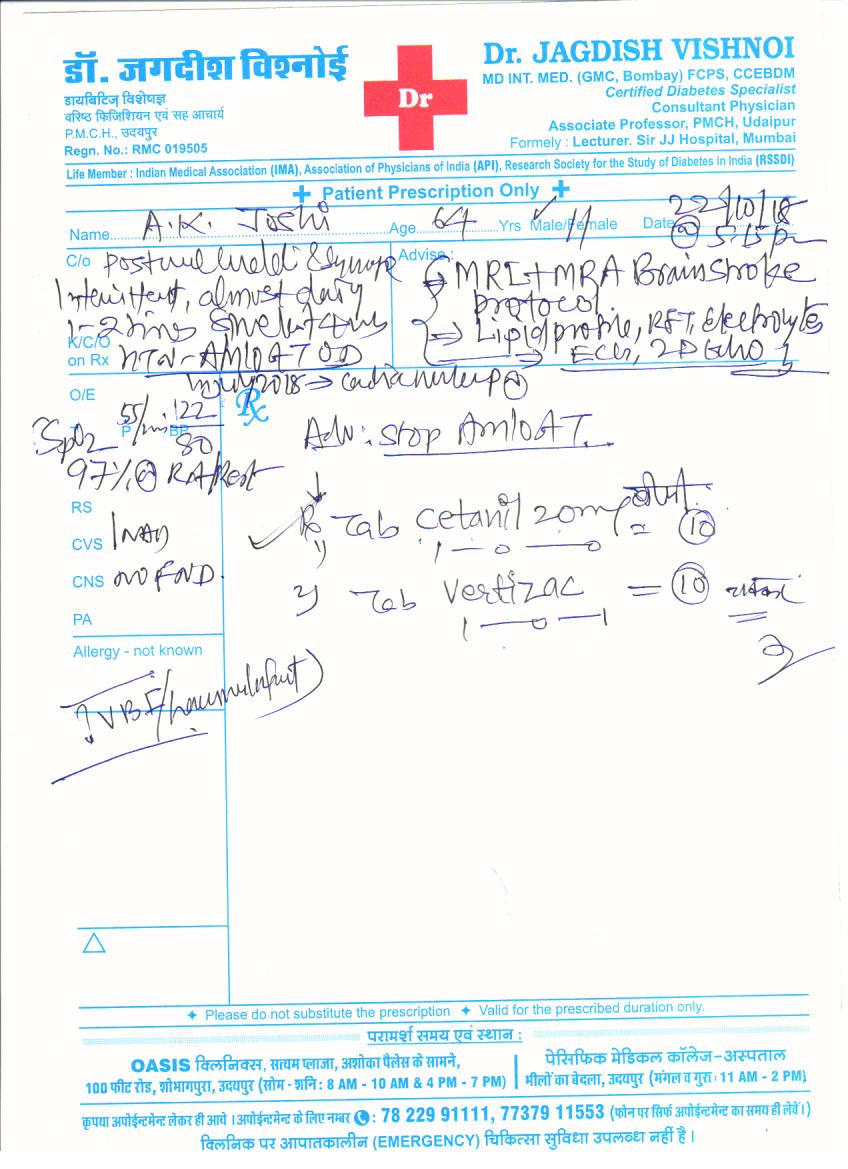 डॉ. जगदीश विश्नोई
डायबिटिज़ विशेषज्ञ
वरिष्ठ फिजिशियन एवं सह आचार्य
P.M.C.H., उदयपुर
Regn. No.: RMC 019505
Dr
Dr. JAGDISH VISHNOI
MD INT. MED. (GMC, Bombay) FCPS, CCEBDM
Certified Diabetes Specialist
Consultant Physician
Associate Professor, PMCH, Udaipur
Formerly : Lecturer. Sir JJ Hospital, Mumbai
Life Member : Indian Medical Association (IMA), Association of Physicians of India (API), Research Society for the Study of Diabetes in India (RSSDI)
Patient Prescription Only
Name A.K. Joshi Age 64 Yrs Male/Female Date 22/10/18
@ 5:15 pm
C/o Postural &
Intermittent, almost daily
1-2 times
K/C/O
on Rx HTN - AMLO AT OD
July 2018 →
Advise :
⇒ MRI + MRA Brain Stroke
protocol
⇒ Lipid profile, RFT, Electrolytes
ECG, 2D Echo
O/E
P 55/min BP 122/80
SpO2
97% @ RA Rest
RS
CVS NAD
CNS NO FND
PA
Allergy - not known
? VBI
Rx
Adv: Stop AMLO AT.
1) Tab Cetanil 20mg = 10
1 — 0 — 0
2) Tab Vertizac = 10
1 — 0 — 1
Please do not substitute the prescription Valid for the prescribed duration only.
परामर्श समय एवं स्थान :
OASIS क्लिनिक्स, सत्यम प्लाजा, अशोका पैलेस के सामने,
100 फीट रोड, शोभागपुरा, उदयपुर (सोम - शनि : 8 AM - 10 AM & 4 PM - 7 PM)
पेसिफिक मेडिकल कॉलेज-अस्पताल
भीलों का बेदला, उदयपुर (मंगल व गुरु : 11 AM - 2 PM)
कृपया अपोईन्टमेन्ट लेकर ही आये । अपोईन्टमेन्ट के लिए नम्बर : 78 229 91111, 77379 11553 (फोन पर सिर्फ अपोईन्टमेन्ट का समय ही लेवें।)
क्लिनिक पर आपातकालीन (EMERGENCY) चिकित्सा सुविधा उपलब्ध नहीं है।